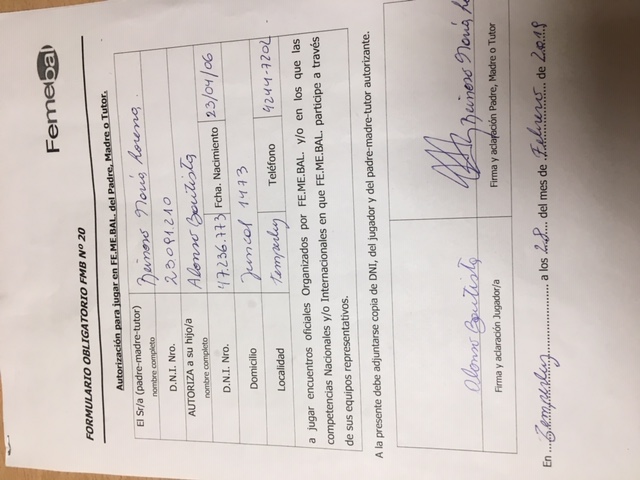 Femebal
FORMULARIO OBLIGATORIO FMB Nº 20
Autorización para jugar en FE.ME.BAL. del Padre, Madre o Tutor.
El Sr/a (padre-madre-tutor) Reinoso María Lorena
nombre completo
D.N.I. Nro. 23091210
AUTORIZA a su hijo/a Alonso Bautista
nombre completo
D.N.I. Nro. 47.236.773 Fcha. Nacimiento 23/04/06
Domicilio Juncal 1473
Localidad Temperley Teléfono 4244-7202
a jugar encuentros oficiales Organizados por FE.ME.BAL. y/o en los que las
competencias Nacionales y/o Internacionales en que FE.ME.BAL. participe a través
de sus equipos representativos.
A la presente debe adjuntarse copia de DNI, del jugador y del padre-madre-tutor autorizante.
Alonso Bautista Reinoso María
Firma y aclaración Jugador/a Firma y aclaración Padre, Madre o Tutor
En Temperley a los 28 del mes de Febrero de 2018